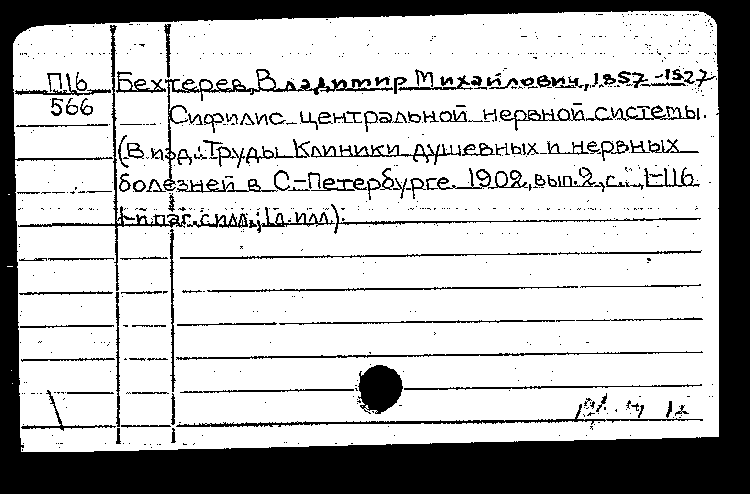 П16 Бехтерев, Владимир Михайлович, 1857-1927
566 Сифилис центральной нервной системы.
(В изд.: Труды Клиники душевных и нервных
болезней в С.-Петербурге. 1902, вып. 2, с. 1-116
1-й паг. с илл.; 1 л. илл.).